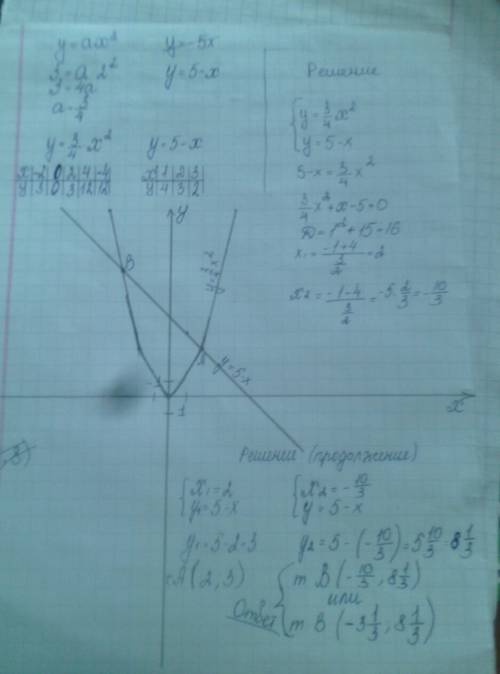 y=ax²
y=-5x
3=a·2²
y=5-x
3=4a
a=3/4
y=3/4·x²
y=5-x
x|-2|0|2|4|-4
y|3|0|3|12|12
x|1|2|3
y|4|3|2
Решение
{y=3/4x²
y=5-x
5-x=3/4·x²
3/4x²+x-5=0
D=1²+15=16
x₁=(-1+4)/(3/2)=2
x₂=(-1-4)/(3/2)=-5·2/3=-10/3
y
B
y=3/4x²
A
y=5-x
1
1
x
,3)
Решение (продолжение)
{x₁=2
y=5-x
{x₂=-10/3
y=5-x
y₁=5-2=3
y₂=5-(-10/3)=5 10/3=8 1/3
т.A(2,3)
Ответ
{т B(-10/3, 8 1/3)
или
т B(-3 1/3, 8 1/3)